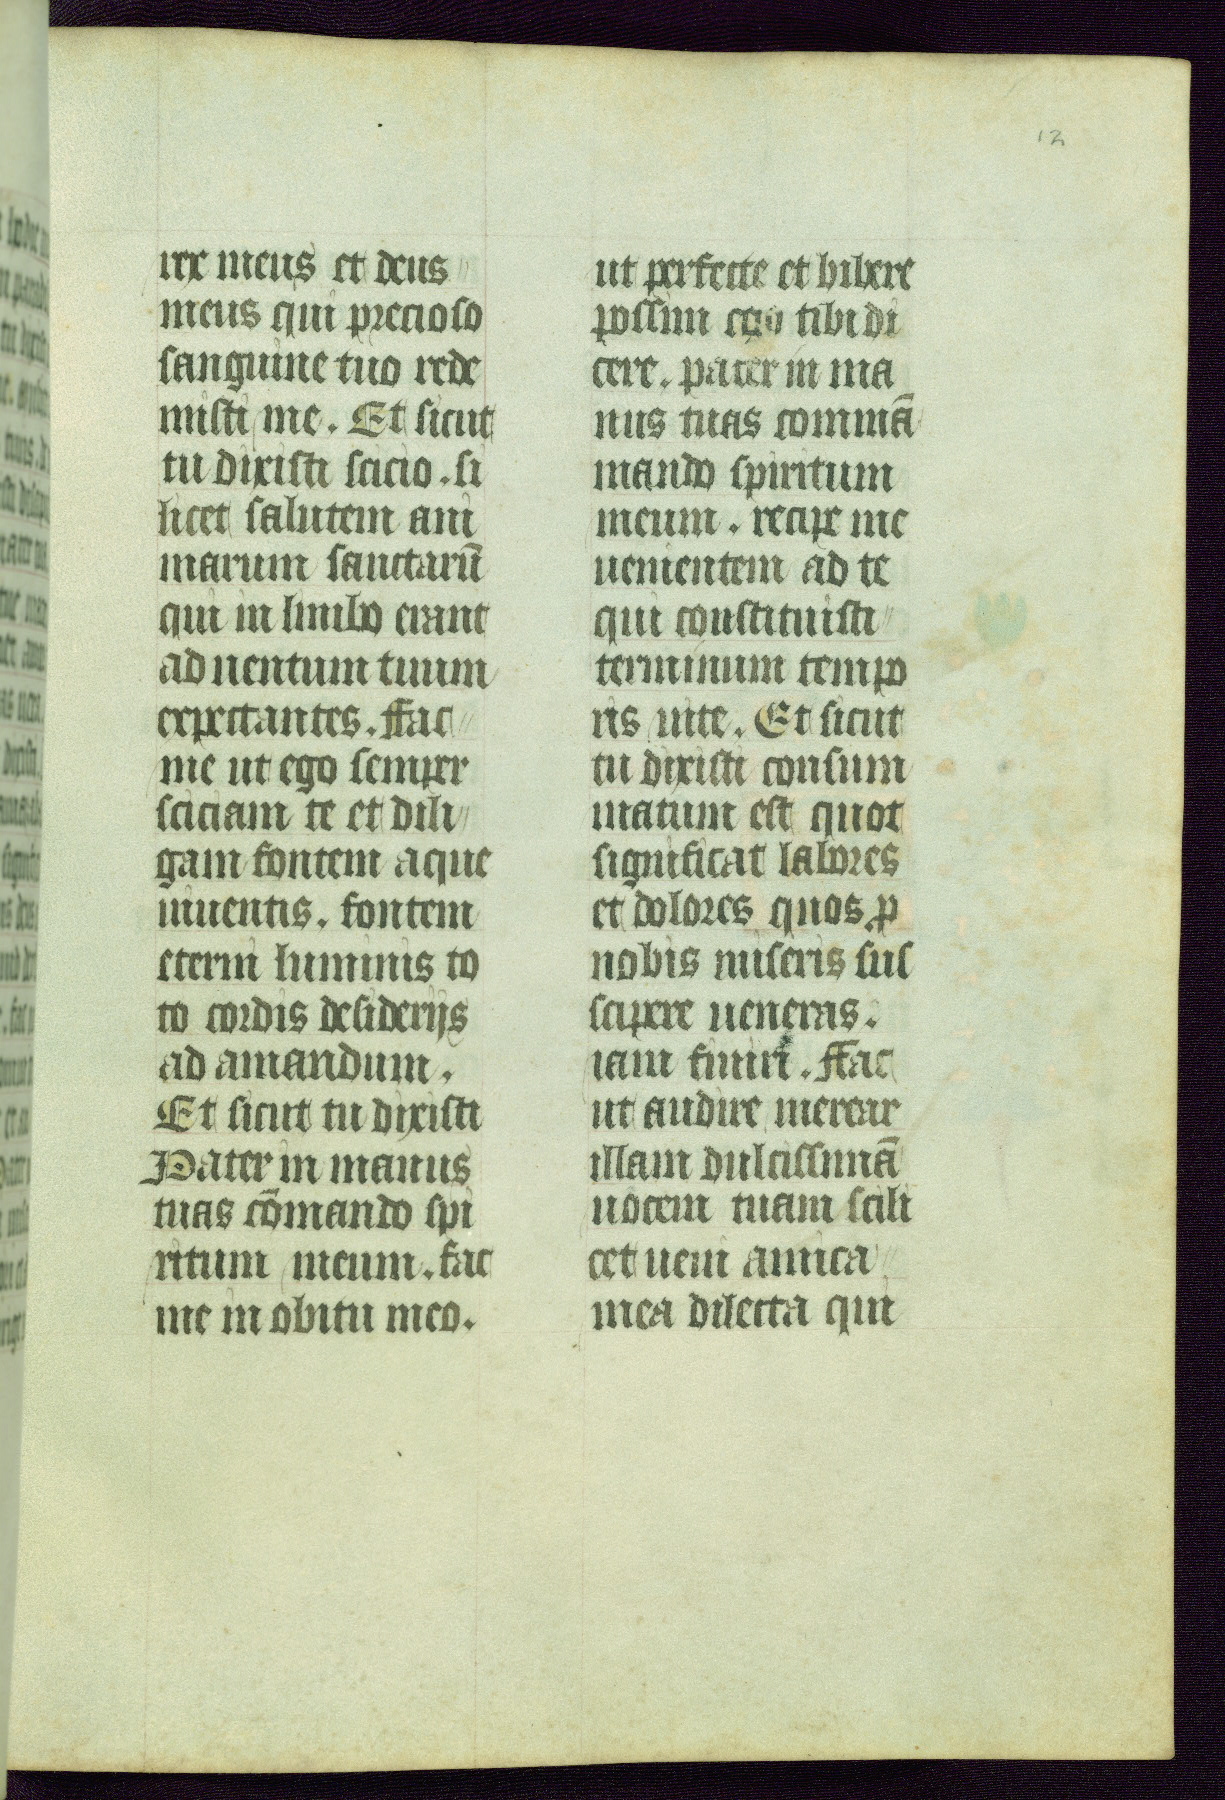 12
rex meus et deus
meus qui precioso
sanguine tuo rede
misti me. Et sicut
tu dixisti scicio. si
licet salutem ani
marum sanctarū
qui in limbo erant
aduentum tuum
expectantes. ffac
me ut ego semper
sciciam te et dili
gam fontem aque
uiuentis. fontem
eterni luminis to
to cordis desiderijs
ad amandum.
Et sicut tu dixisti
Pater in manus
tuas cōmando spi
ritum meum. fac
me in obitu meo.
ut perfecte et bibere
possim ego tibi di
cere. pater in ma
nus tuas commā
mando spiritum
meum. recipe me
uenientem ad te
qui constituisti
terminum tempo
ris uite. Et sicut
tu dixisti consum
matum est quot
significat labores
et dolores quos ꝓ
nobis miseris sus
scipere ueneras.
iam finiri. ffac
ut audire merear
illam dulcissimā
uocem tuam scili
cet ueni amica
mea dilecta qui